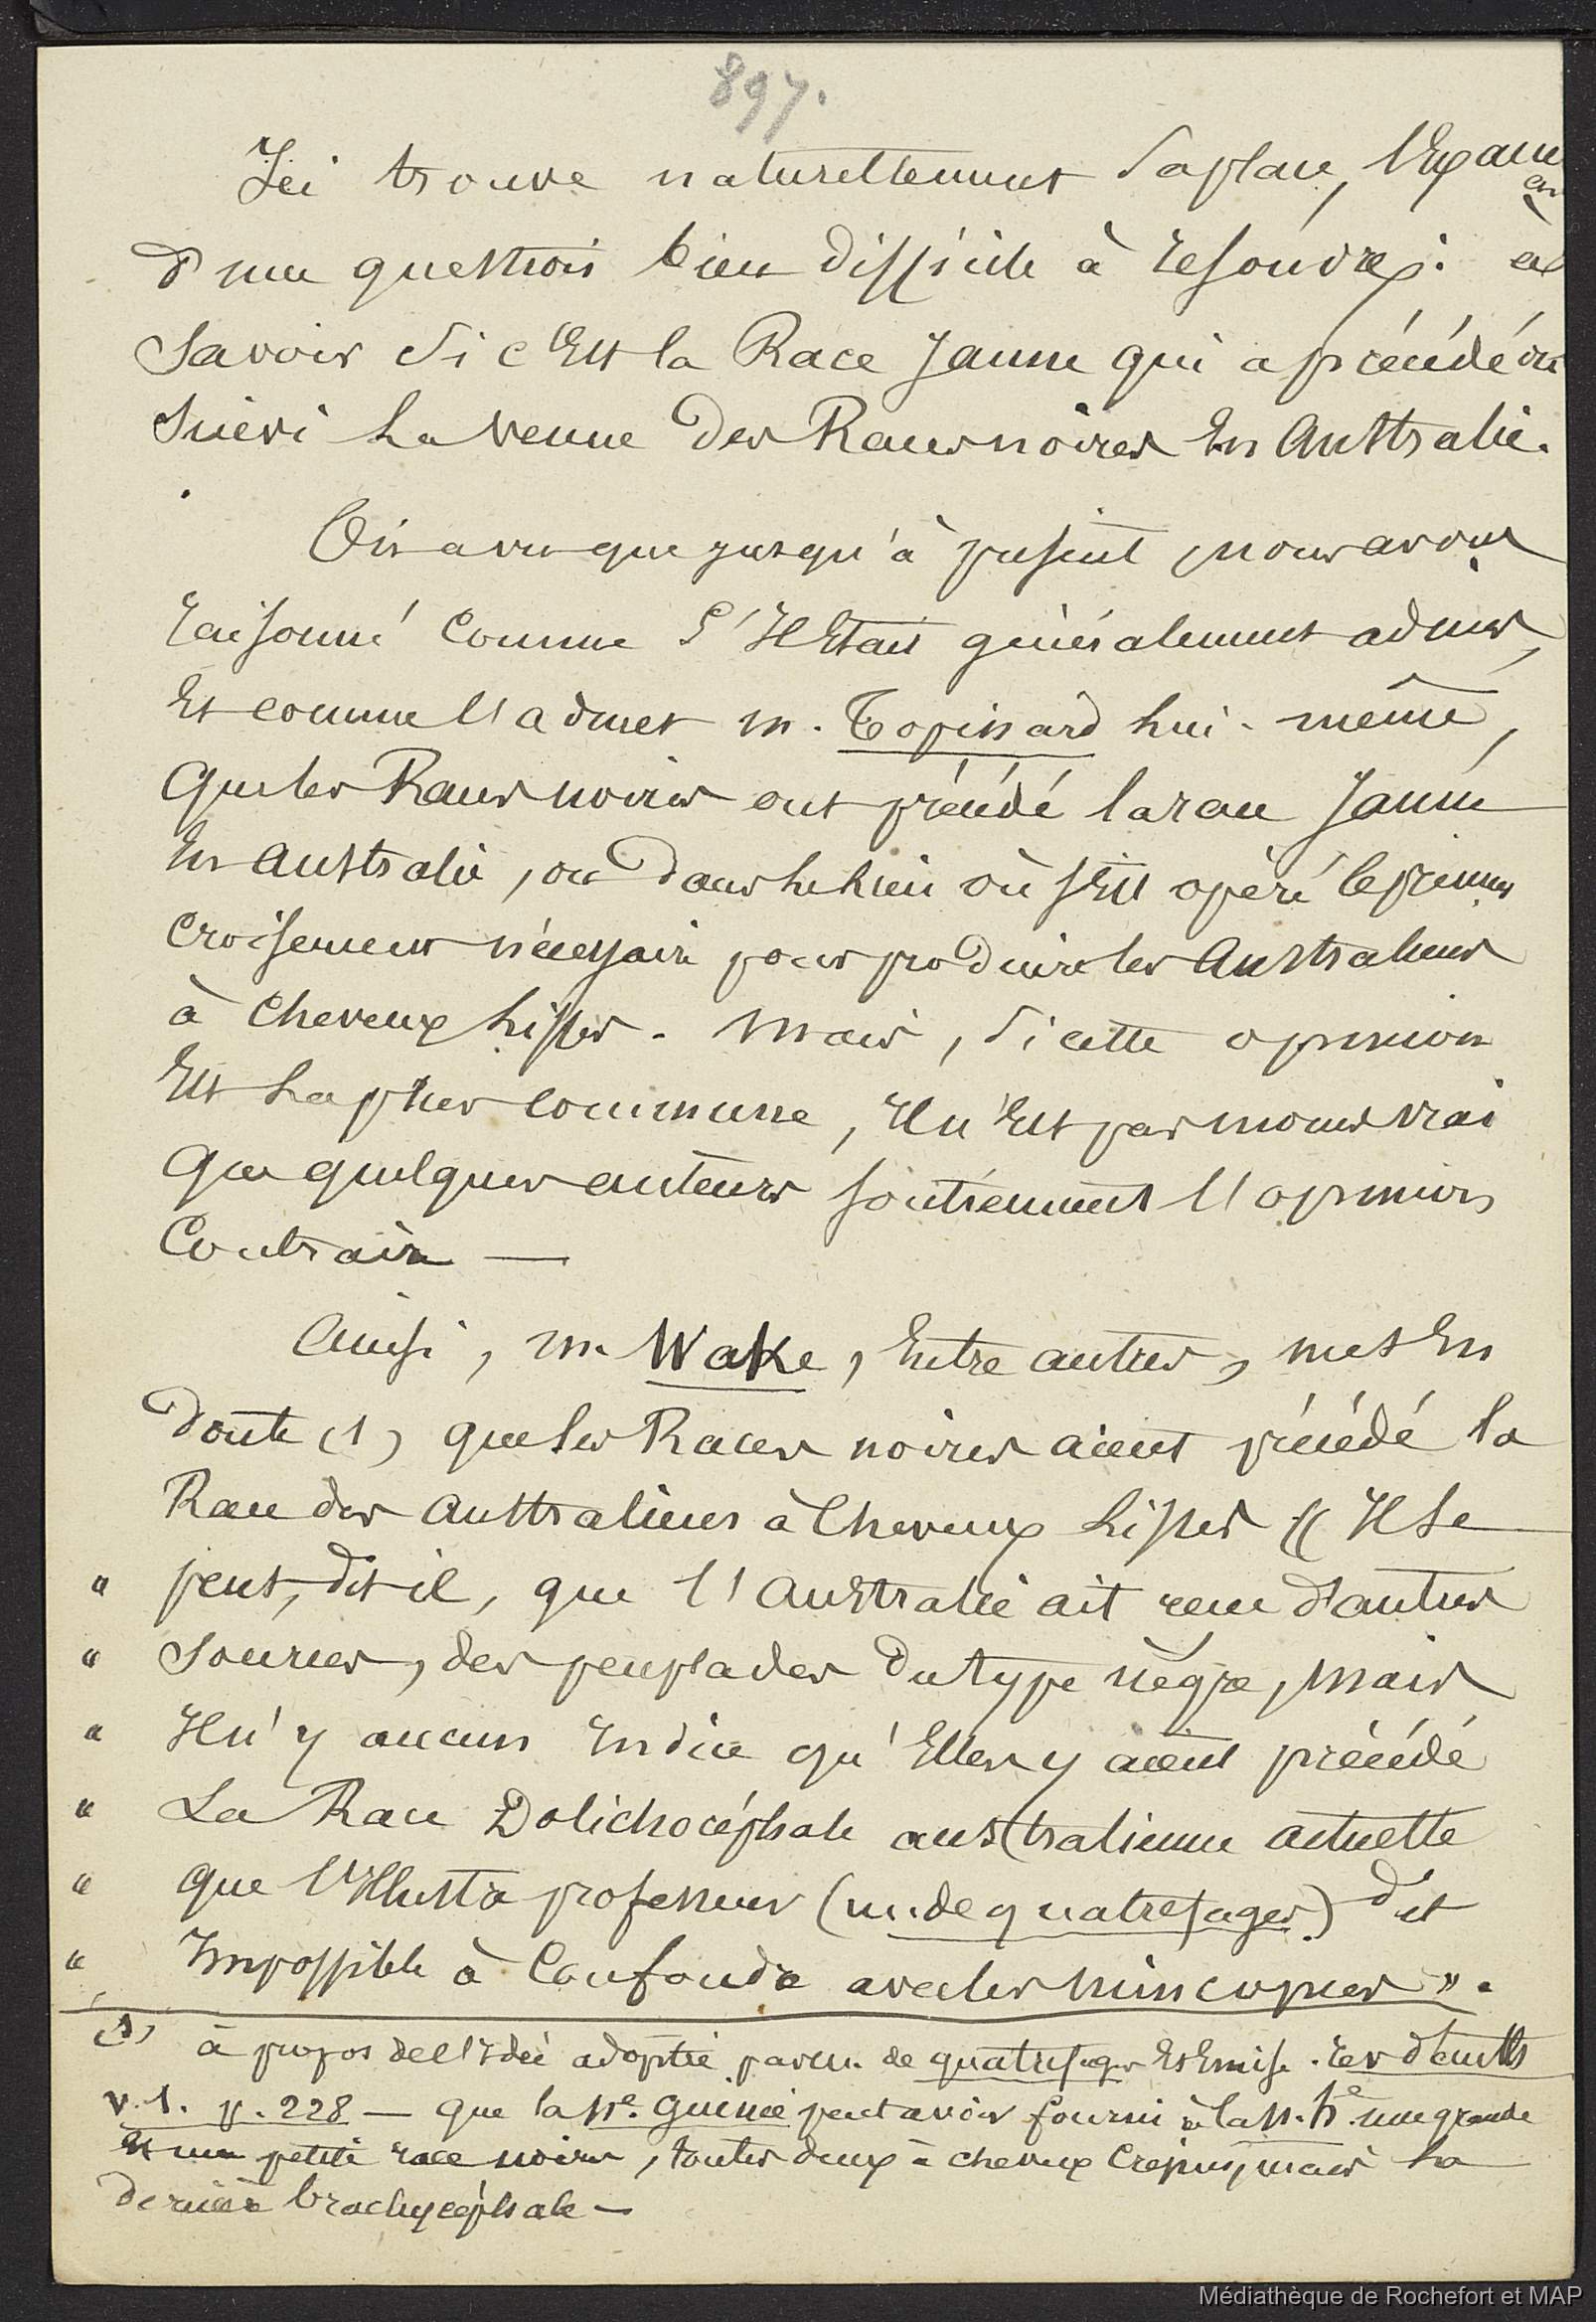 897.
Ici trouve naturellement sa place, l'Examen
d'une question bien difficile à résoudre: à
savoir si c'Est la Race Jaune qui a précédé ou
suivi la venue des Races noires En Australie.
On a vu que jusqu'à présent, nous avons
raisonné comme s'Il Etait généralement admis,
Et comme l'admet M. Topinard lui-même,
que les Races noires ont précédé la race Jaune
En Australie, ou dans le lieu où s'Est opéré le premier
croisement nécessaire pour produire les Australiens
à cheveux lisses. Mais, si cette opinion
Est la plus commune, Il n'Est pas moins vrai
que quelques auteurs soutiennent l'opinion
Contraire —
Ainsi, M. Wake, Entre autres, met En
doute (1) que les Races noires aient précédé la
Race des Australiens à Cheveux Lisses « Il se
" peut, dit-il, que l'Australie ait reçu d'autres
" sources, des peuplades du type nègre, mais
" Il n'y aucun Indice qu'Elles y aient précédé
" La Race Dolichocéphale australienne actuelle
" que l'Illustre professeur (M. de quatrefages) dit
" Impossible à Confondre avec les Mincopies ».
(1) à propos de l'Idée adoptée par M. de quatrefages Et Emise
V. 1. p. 228 — que la Nlle. Guinée peut avoir fourni à la N. H. une grande
Et une petite race noires, toutes deux à cheveux crépus, mais la
dernière brachycéphale —
Médiathèque de Rochefort et MAP